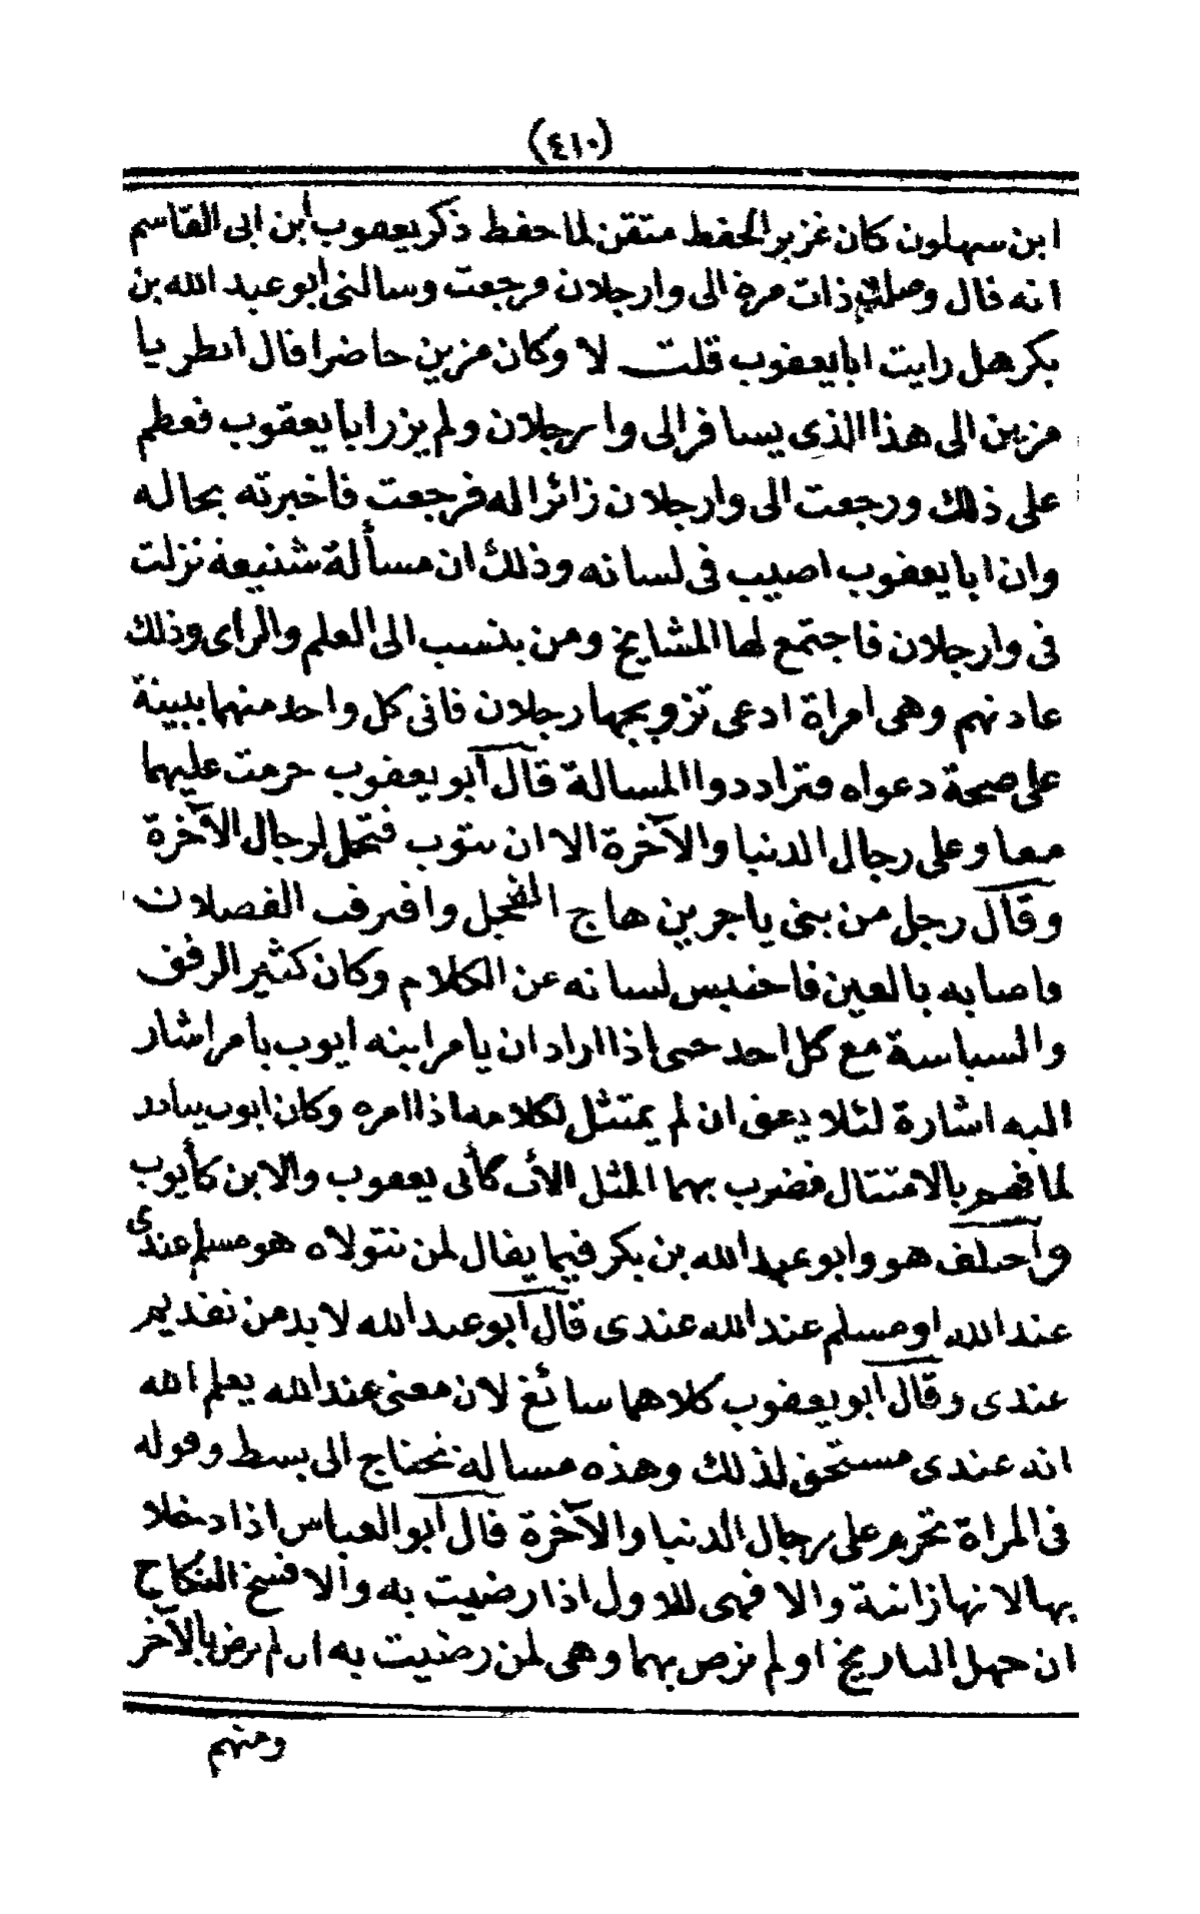 (٤١٠)
ابن سهلون كان غزير الحفظ متقن لما حفظ ذكر يعقوب أبن ابى القاسم
انه قال وصلت ذات مرة الى وارجلان فرجعت وسالنى أبو عبد الله بن
بكر هل رايت ابا يعقوب قلت لا وكان مزين حاضرا فال انظر يا
مزين الى هذا الذى يسافر الى وارجلان ولم يزر ابا يعقوب فعظم
على ذلك ورجعت الى وارجلان زائرا له فرجعت فأخبرته بحاله
وان ابا يعقوب اصيب فى لسانه وذلك ان مسألة شنيعة نزلت
فى وارجلان فاجتمع لها المشايخ ومن ينسب الى العلم والراى وذلك
عادتهم وهى امراة ادعى تزويجها رجلان فاتى كل واحد منهما ببينة
على صحة دعواه فترادد وا المسالة قال أبو يعقوب حرمت عليهما
معا وعلى رجال الدنيا والآخرة الا ان تتوب فتحل لرجال الآخرة
وقال رجل من بنى ياجرين هاج الفحل وافترقت الفصلان
واصابه بالعين فاحتبس لسانه عن الكلام وكان كثير الرفق
والسياسة مع كل احد حتى اذا اراد ان يامر ابنه ايوب بامر اشار
اليه اشارة لئلا يعق ان لم يمتثل لكلامه اذا امره وكان ايوب يبادر
لما فهم بالامتثال فضرب بهما المثل الأب كأبى يعقوب والابن كأيوب
وأختلف هو وابو عبد الله بن بكر فيما يقال لمن نتولاه هو مسلم عندى
عند الله او مسلم عند الله عندى قال أبو عبد الله لا بد من تقديم
عندى وقال أبو يعقوب كلاهما سائغ لان معنى عند الله يعلم الله
انه عندى مستحق لذلك وهذه مسالة تحتاج الى بسط وقوله
فى المراة تحرم على رجال الدنيا والآخرة قال أبو العباس اذا دخلا
بها لانها زانية والا فهى للاول اذا رضيت به والا فسخ النكاح
ان جهل التاريخ او لم ترض بهما وهى لمن رضيت به ان لم ترض بالآخر
ومنهم